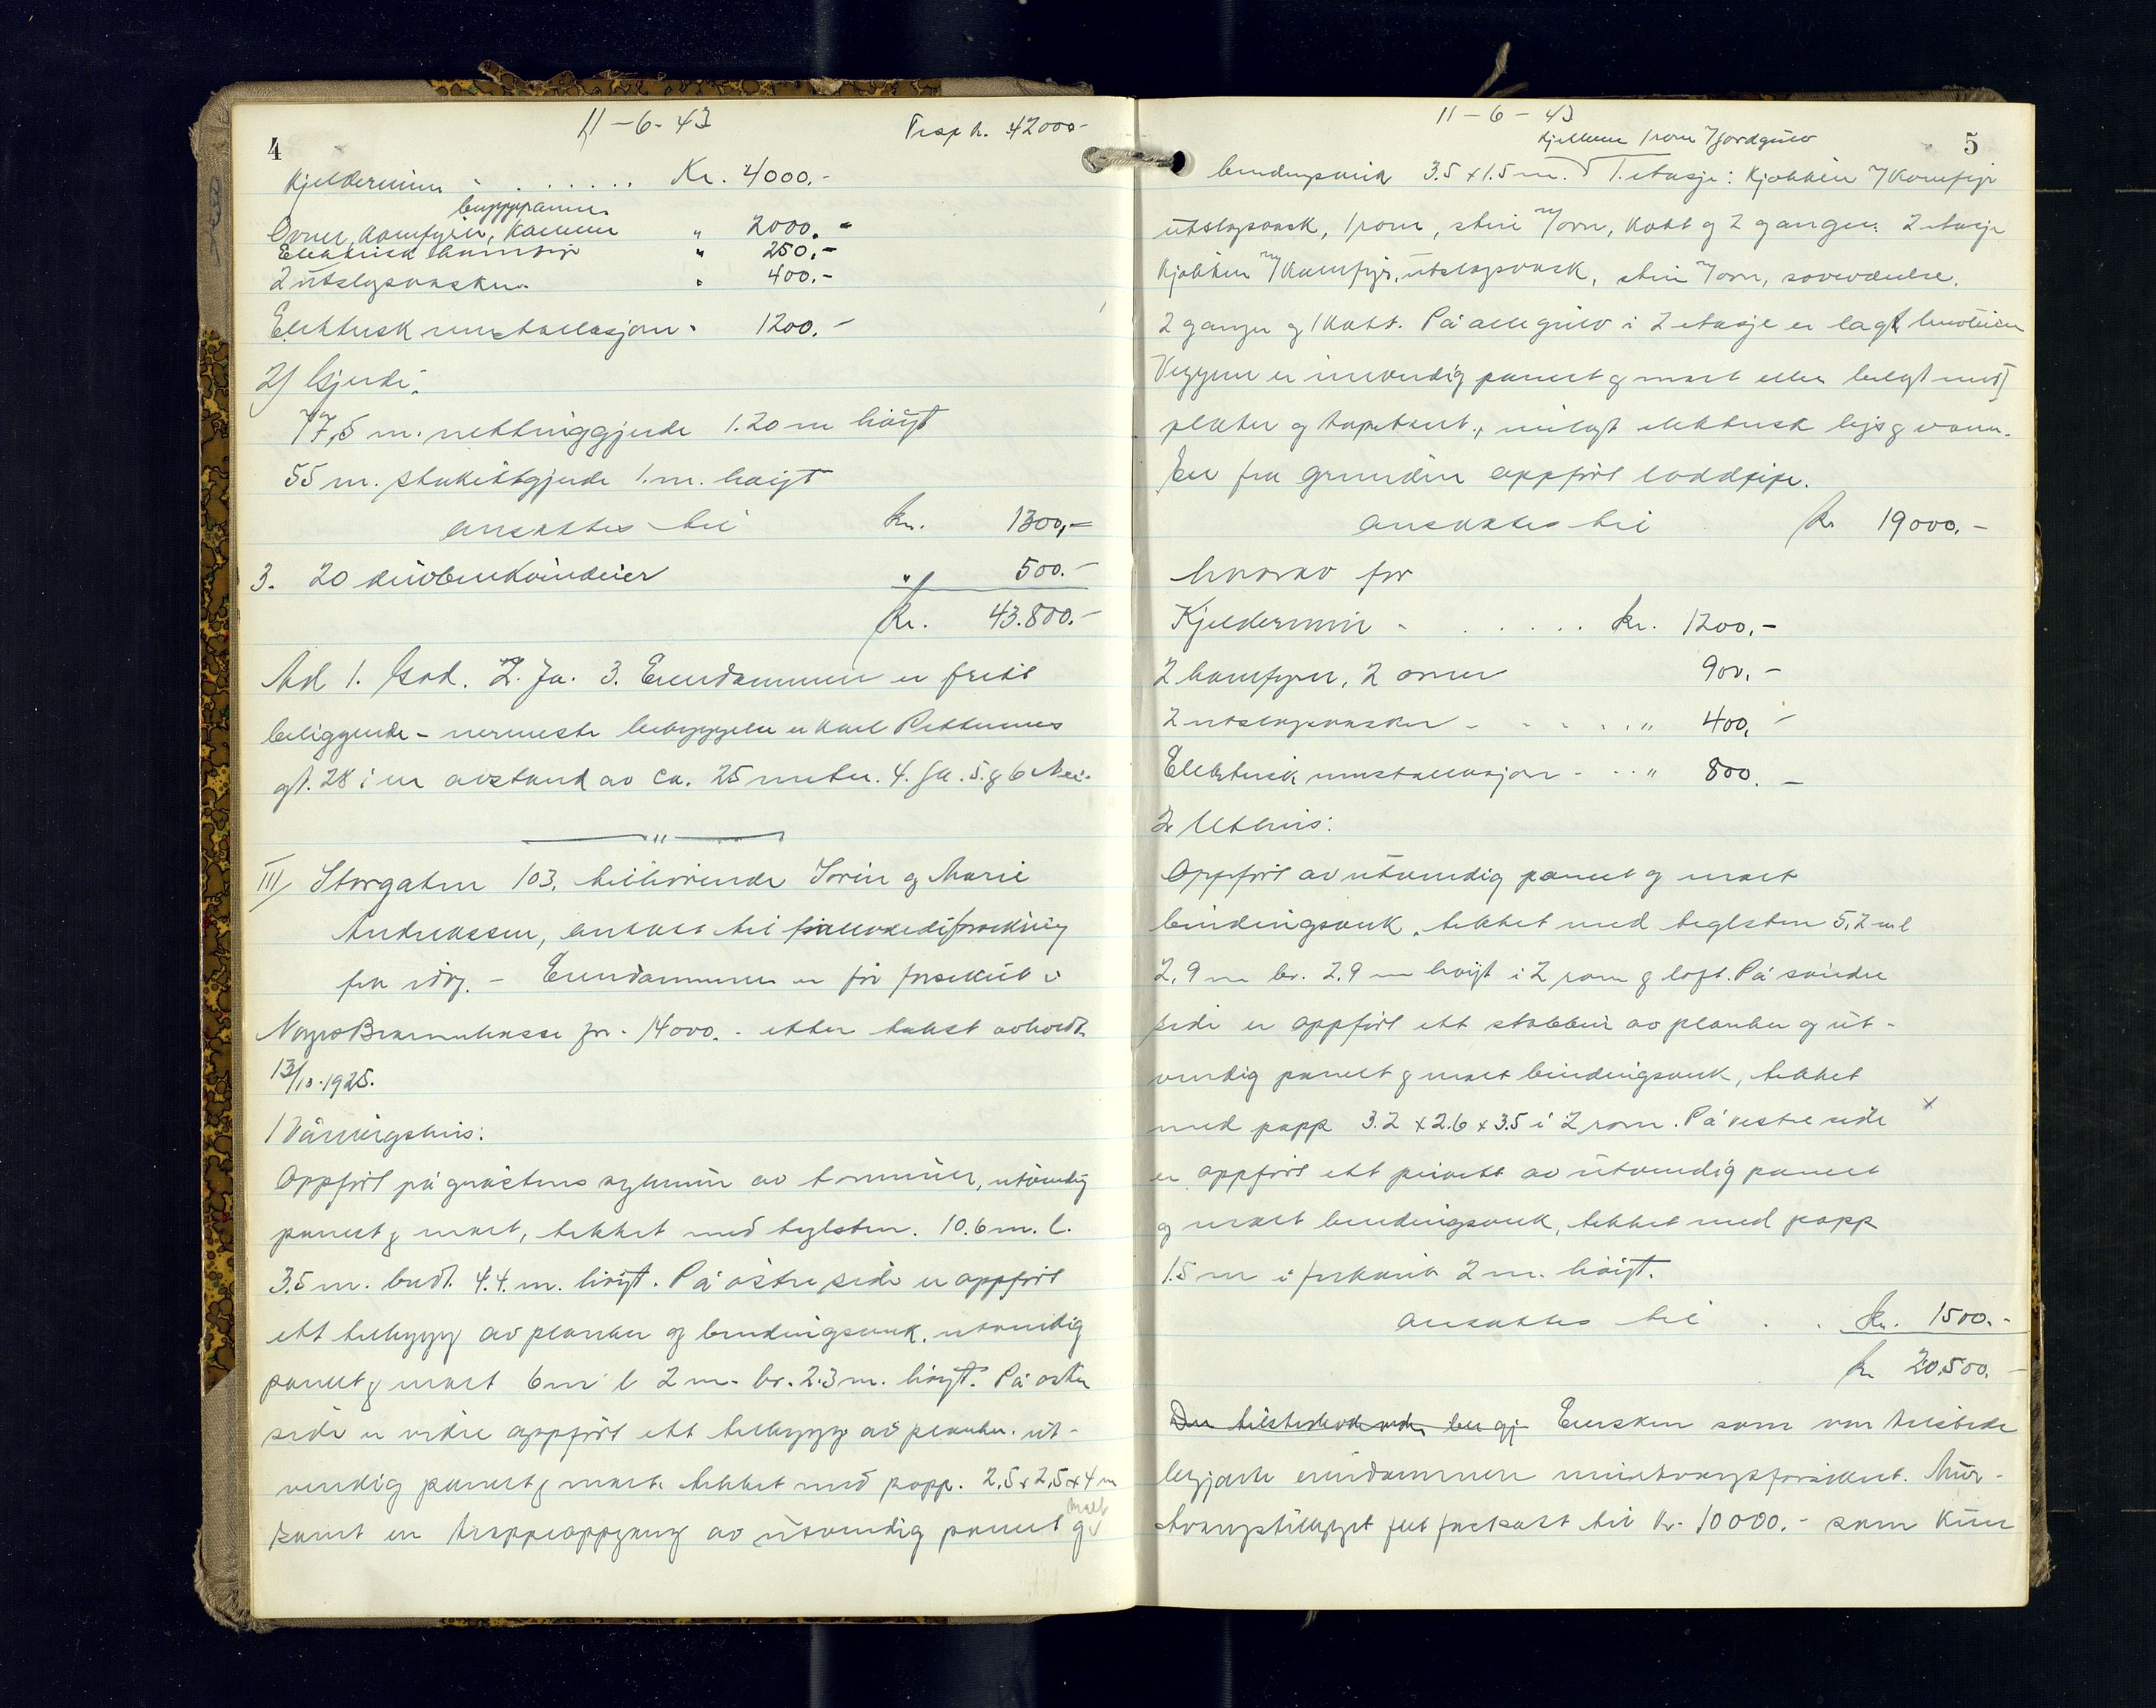 4
11-6-43
Trsp h. 42000-
Kjeldermur - . . . . . . Kr. 4000.-
bryggepanne
Ovner, komfyrer, kaminer " 2000.-
Elektrisk komfyr " 250.-
2 utslagsvasker. " 400.-
Elektrisk innstallasjon. 1200.-
2) Gjerde:
77,5 m. nettinggjerde 1.20 m høigt
55 m. stakittgjerde 1. m. høigt
ansattes til kr. 1300,-
3. 20 " 500.-
Kr. 43.800.-
Ad 1. God. 2. Ja. 3. Eiendommen er fritt
beliggende - nermeste bebyggelse er Karl Pettersens
gt. 28 i en avstand av ca. 25 meter. 4. Ja. 5. & 6 Nei.
"
III/ Storgaten 103, tilhørende Sørin og Marie
Andreassen, antatt til fullverdiforsikring
fra idag. - Eiendommen er før forsikret i
Norges Brannkasse for - 14000.- etter takst avholdt
13/10.1925.
1 Våningshus:
Oppført på gråstens sylmur av tømmer, utvendig
panelt & malt, tekket med teglsten. 10.6 m. l.
3.5 m. bredt. 4.4. m. høigt. På østre side er oppført
ett tilbygg av planker og bindingsverk. utvendig
panelt & malt 6 m l 2 m. br. 2.3 m. høigt. På østre
side er videre oppført ett tilbygg av planker. ut-
vendig panelt & malt. tekket med papp. 2,5 x 2,5 x 4 m
malt
samt en trappeoppgang av utvendig panelt &
5
11-6-43
Kjelleren 1 rom m/jordgulv
bindingsverk 3.5 x 1.5 m. 1. etasje: Kjøkken m/komfyr
utslagsvask, 1 rom, stue m/ovn, kott og 2 ganger. 2 etasje
Kjøkken m/komfyr, utslagsvask, stue m/ovn, soveværelse.
2 ganger og 1 kott. På alle gulv i 2 etasje er lagt linoleum
Veggene er innvendig panelt & malt eller belagt med
plater og tapetsert, innlagt elektrisk lys & vann.
En fra grunden oppført loddpipe.
ansattes til kr 19000.-
hvorav for
Kjeldermur - . . . . . kr. 1200.-
2 komfyrer, 2 ovner 900.-
2 utslagsvasker - . . . . " 400.-
Elektrisk innstallasjon - . . " 800.-
2. Uthus:
Oppført av utvendig panelt og malt
bindingsverk, tekket med teglsten 5,2 m l
2,9 m br. 2.9 m høigt i 2 rom & loft. På søndre
side er oppført ett stabbur av planker og ut-
vendig panelt & malt bindingsverk, tekket
med papp 3.2 x 2.6 x 3.5 i 2 rom. På vestre side x
er oppført ett privett av utvendig panelt
og malt bindingsverk, tekket med papp
1.5 m i firkant 2 m. høigt.
ansattes til . . kr. 1500.-
kr 20,500.-
Den tilstedeværende ber gj Eiersken som var tilstede
begjærte eiendommen murtvangsforsikret. Mur-
tvangstillegget blet fastsatt til kr. 10000.- som kun